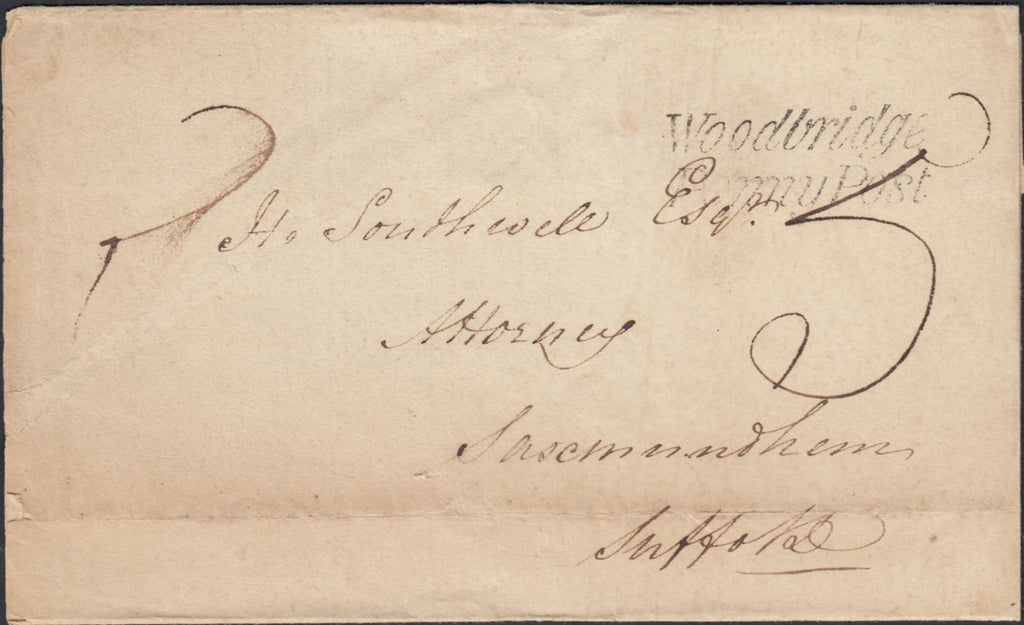 Woodbridge
Penny Post
H. Southwell Esqr.
5
Attorney
Saxmundham
Suffolk